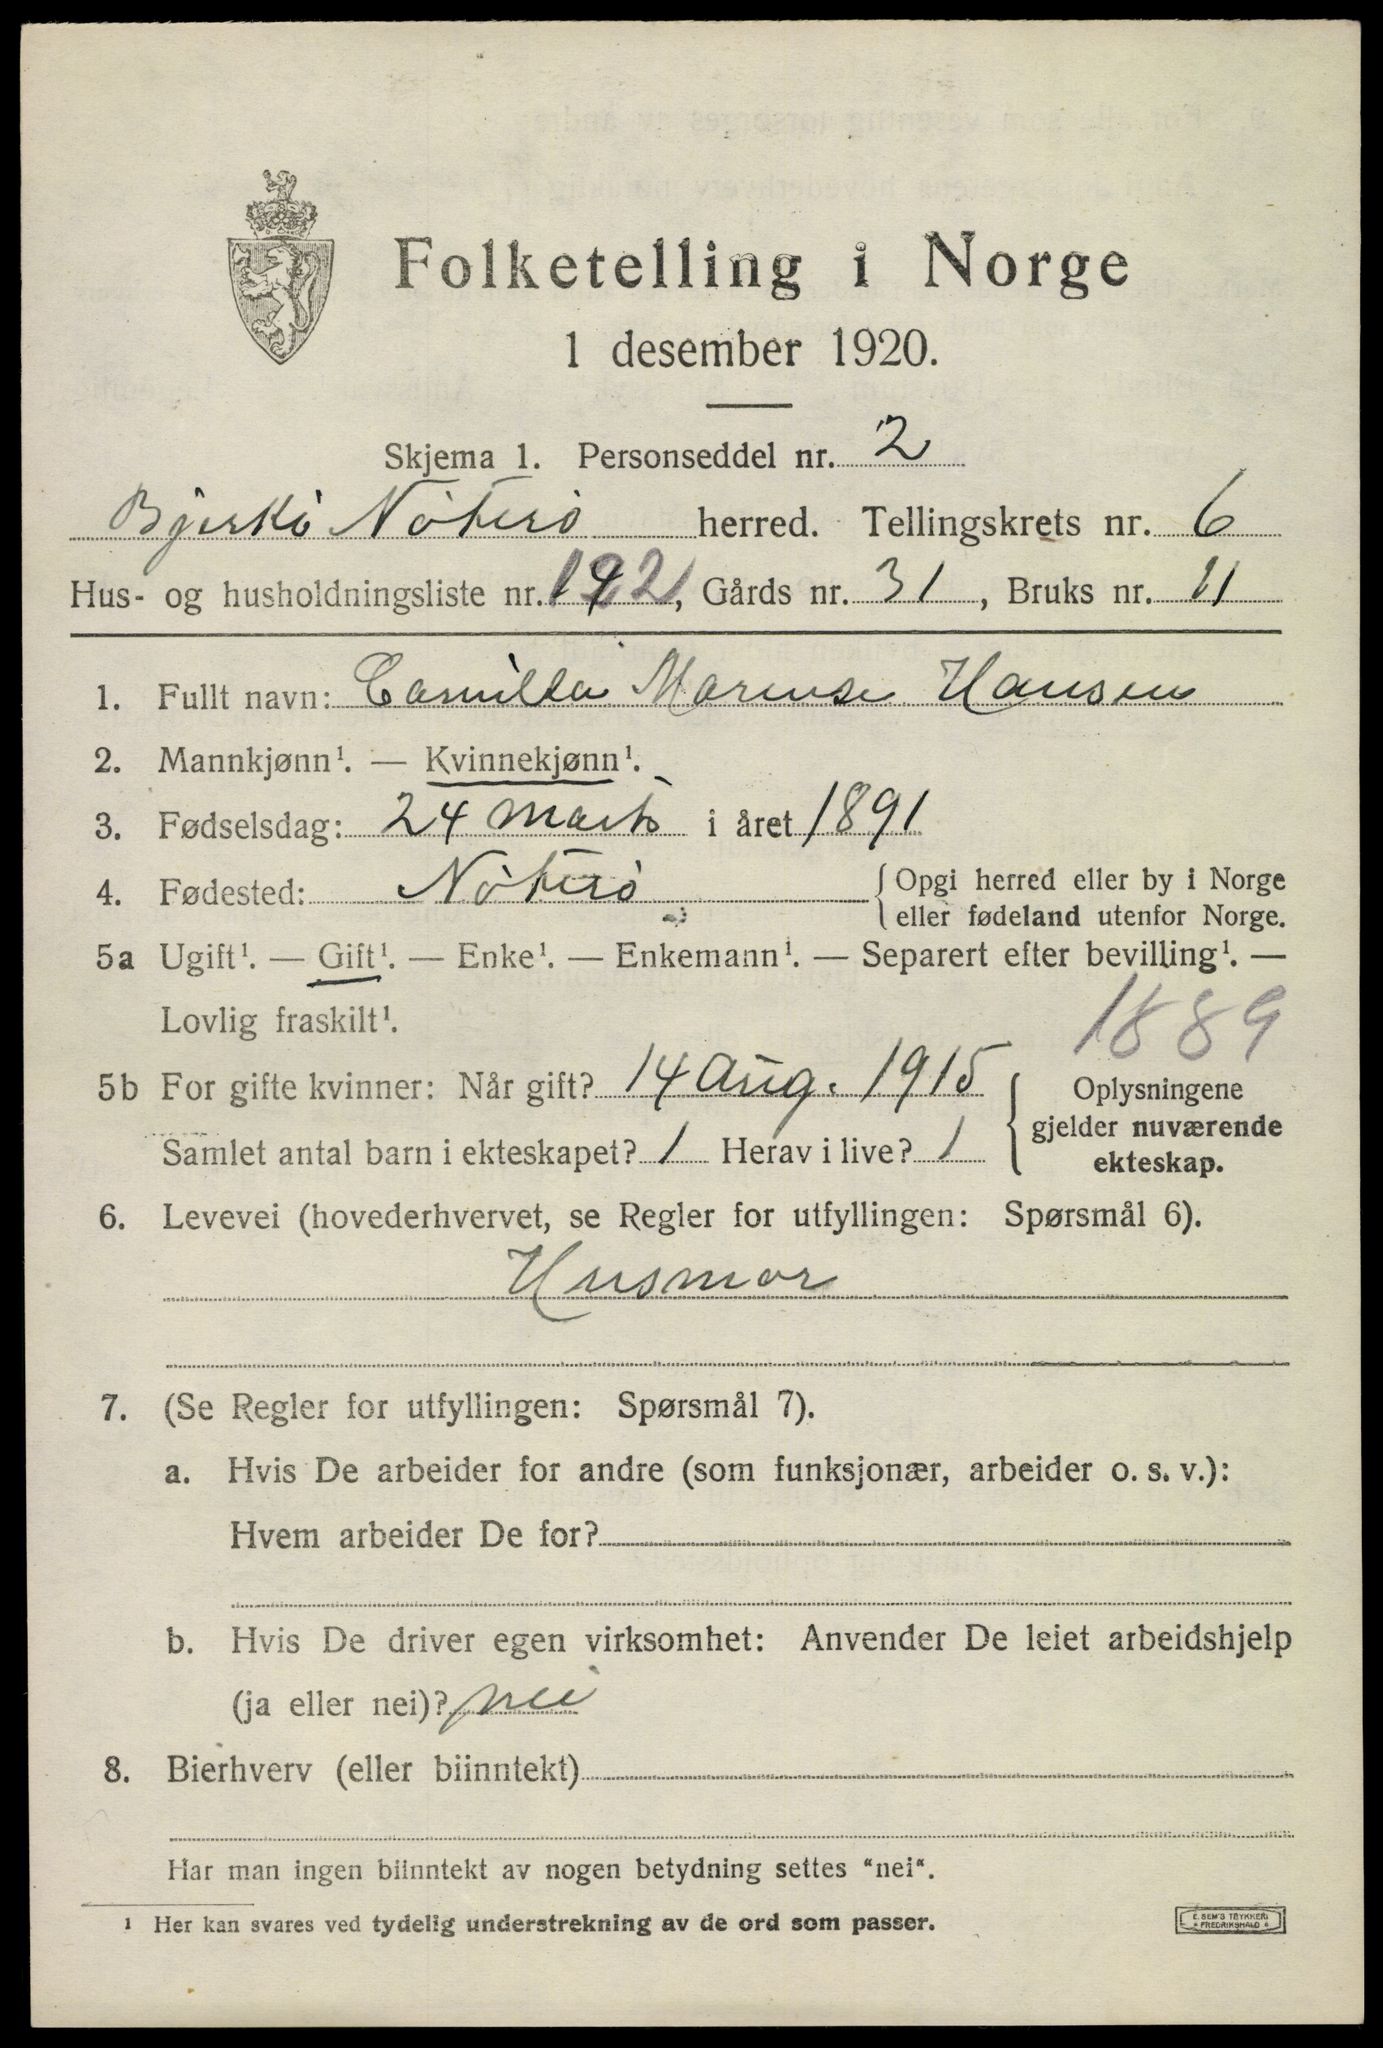 Folketelling i Norge
1 desember 1920.
Skjema 1. Personseddel nr. 2
Bjerkø Nøterø herred. Tellingskrets nr. 6
Hus- og husholdningsliste nr. 122, Gårds nr. 31, Bruks nr. 11
1. Fullt navn: Camilla Marense Hansen
2. Mannkjønn¹. — Kvinnekjønn¹.
3. Fødselsdag: 24 marts i året 1891
4. Fødested: Nøterø {Opgi herred eller by i Norge
eller fødeland utenfor Norge.
5a Ugift¹. — Gift¹. — Enke¹. — Enkemann¹. — Separert efter bevilling¹. —
Lovlig fraskilt¹.
1889
5b For gifte kvinner: Når gift? 14 Aug. 1915
Samlet antal barn i ekteskapet? 1 Herav i live? 1
{Oplysningene
gjelder nuværende
ekteskap.
6. Levevei (hovederhvervet, se Regler for utfyllingen: Spørsmål 6).
Husmor
7. (Se Regler for utfyllingen: Spørsmål 7).
a. Hvis De arbeider for andre (som funksjonær, arbeider o. s. v.):
Hvem arbeider De for?
b. Hvis De driver egen virksomhet: Anvender De leiet arbeidshjelp
(ja eller nei)? nei
8. Bierhverv (eller biinntekt)
Har man ingen biinntekt av nogen betydning settes "nei".
¹ Her kan svares ved tydelig understrekning av de ord som passer.
E. SEM'S TRYKKERI
FREDRIKSHALD